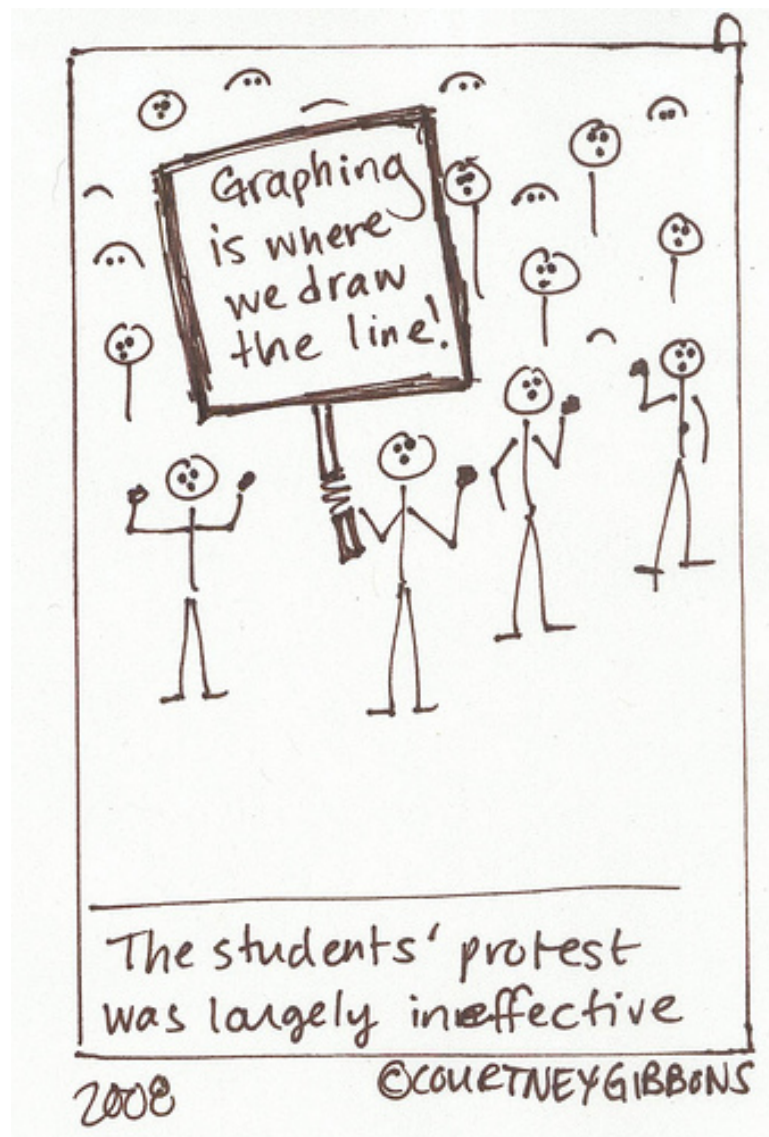 Graphing
is where
we draw
the line!
The students' protest
was largely ineffective
2008
©COURTNEY GIBBONS